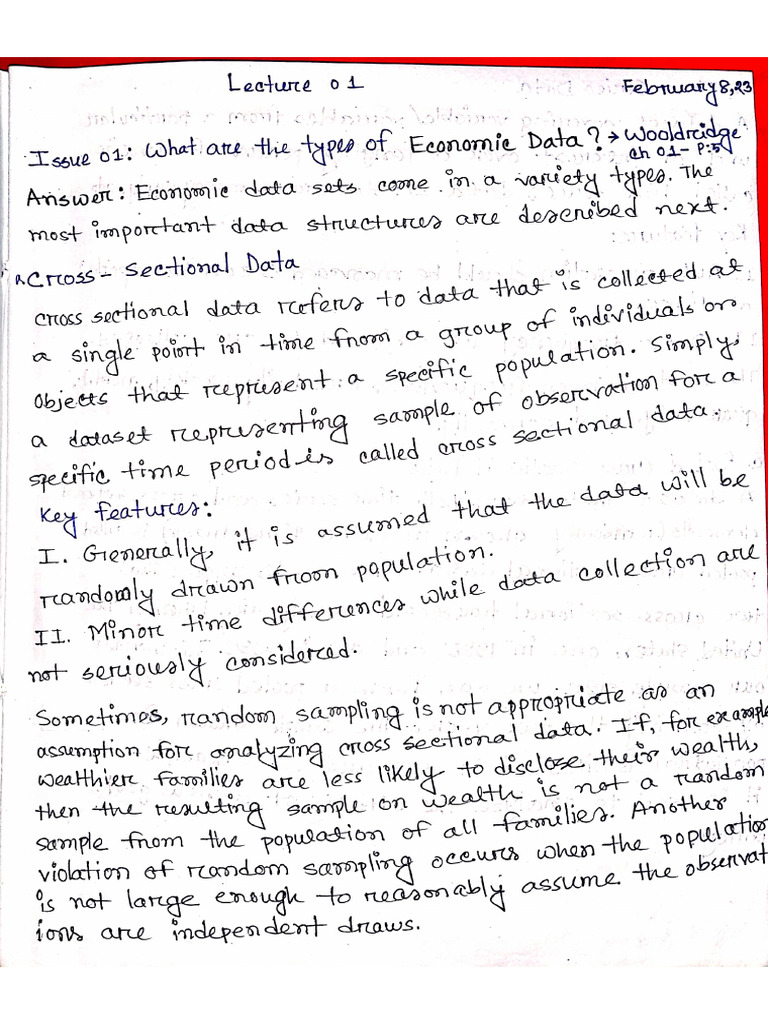 Lecture 01
February 8, 23
Issue 01: What are the types of Economic Data? → Wooldridge
ch 01 - P:5
Answer: Economic data sets come in a variety types. The
most important data structures are described next.
Cross - Sectional Data
cross sectional data refers to data that is collected at
a single point in time from a group of individuals or
objects that represent a specific population. Simply,
a dataset representing sample of observation for a
specific time period is called cross sectional data.
Key features:
I. Generally, it is assumed that the data will be
randomly drawn from population.
II. Minor time differences while data collection are
not seriously considered.
Sometimes, random sampling is not appropriate as an
assumption for analyzing cross sectional data. If, for example
wealthier families are less likely to disclose their wealth,
then the resulting sample on wealth is not a random
sample from the population of all families. Another
violation of random sampling occurs when the population
is not large enough to reasonably assume the observat
ions are independent draws.